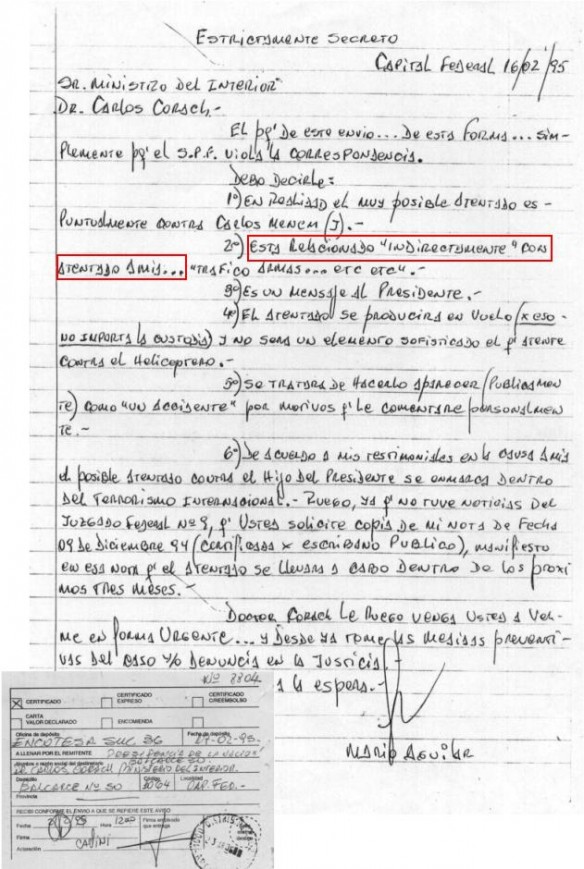 ESTRICTAMENTE SECRETO
CAPITAL FEDERAL 16/02/95
SR. MINISTRO DEL INTERIOR
DR. CARLOS CORACH.-
EL pq' DE ESTE ENVIO... DE ESTA FORMA... SIM-
PLEMENTE pq' EL S.P.F. VIOLA LA CORRESPONDENCIA.
DEBO DECIRLE:
1º) EN REALIDAD EL MUY POSIBLE ATENTADO ES
PUNTUALMENTE CONTRA CARLOS MENEM (J).-
2º) ESTA RELACIONADO "INDIRECTAMENTE" CON
ATENTADO AMIA... "TRAFICO ARMAS... ETC ETC".-
3º) ES UN MENSAJE AL PRESIDENTE.-
4º) EL ATENTADO SE PRODUCIRA EN VUELO (x ESO
NO IMPORTA LA CUSTODIA) Y NO SERA UN ELEMENTO SOFISTICADO EL q' ATENTE
CONTRA EL HELICOPTERO.-
5º) SE TRATARA DE HACERLO APARECER (PUBLICAMEN
TE) COMO "UN ACCIDENTE" POR MOTIVOS q' LE COMENTARE PERSONALMEN
TE.-
6º) DE ACUERDO A MIS TESTIMONIALES EN LA CAUSA AMIA
EL POSIBLE ATENTADO CONTRA EL HIJO DEL PRESIDENTE SE ENMARCA DENTRO
DEL TERRORISMO INTERNACIONAL.- RUEGO, YA q' NO TUVE NOTICIAS DEL
JUZGADO FEDERAL Nº 9, q' USTED SOLICITE COPIA DE MI NOTA DE FECHA
09 DE DICIEMBRE 94 (CERTIFICADA x ESCRIBANO PUBLICO), MANIFIESTO
EN ESA NOTA q' EL ATENTADO SE LLEVARA A CABO DENTRO DE LOS PROXI
MOS TRES MESES.-
DOCTOR CORACH LE RUEGO VENGA USTED A VER-
ME EN FORMA URGENTE... Y DESDE YA TOME LAS MEDIDAS PREVENTI-
VAS DEL CASO Y/O DENUNCIA EN LA JUSTICIA.
A LA ESPERA.-
MARIO AGUILAR
Nº 8804
CERTIFICADO
CERTIFICADO EXPRESO
CERTIFICADO C/REEMBOLSO
CARTA VALOR DECLARADO
ENCOMIENDA
Oficina de depósito
Fecha de depósito
ENCOTESA SUC. 36
-02-95.
A LLENAR POR EL REMITENTE
DR CARLOS CORACH (MINISTERIO DEL INTERIOR.
Domicilio
Código
Localidad
BALCARCE Nº 50
1064
CAP. FED.-
Provincia
RECIBI CONFORME EL ENVIO A QUE SE REFIERE ESTE AVISO
Fecha
Hora 1200
Firma
Aclaración